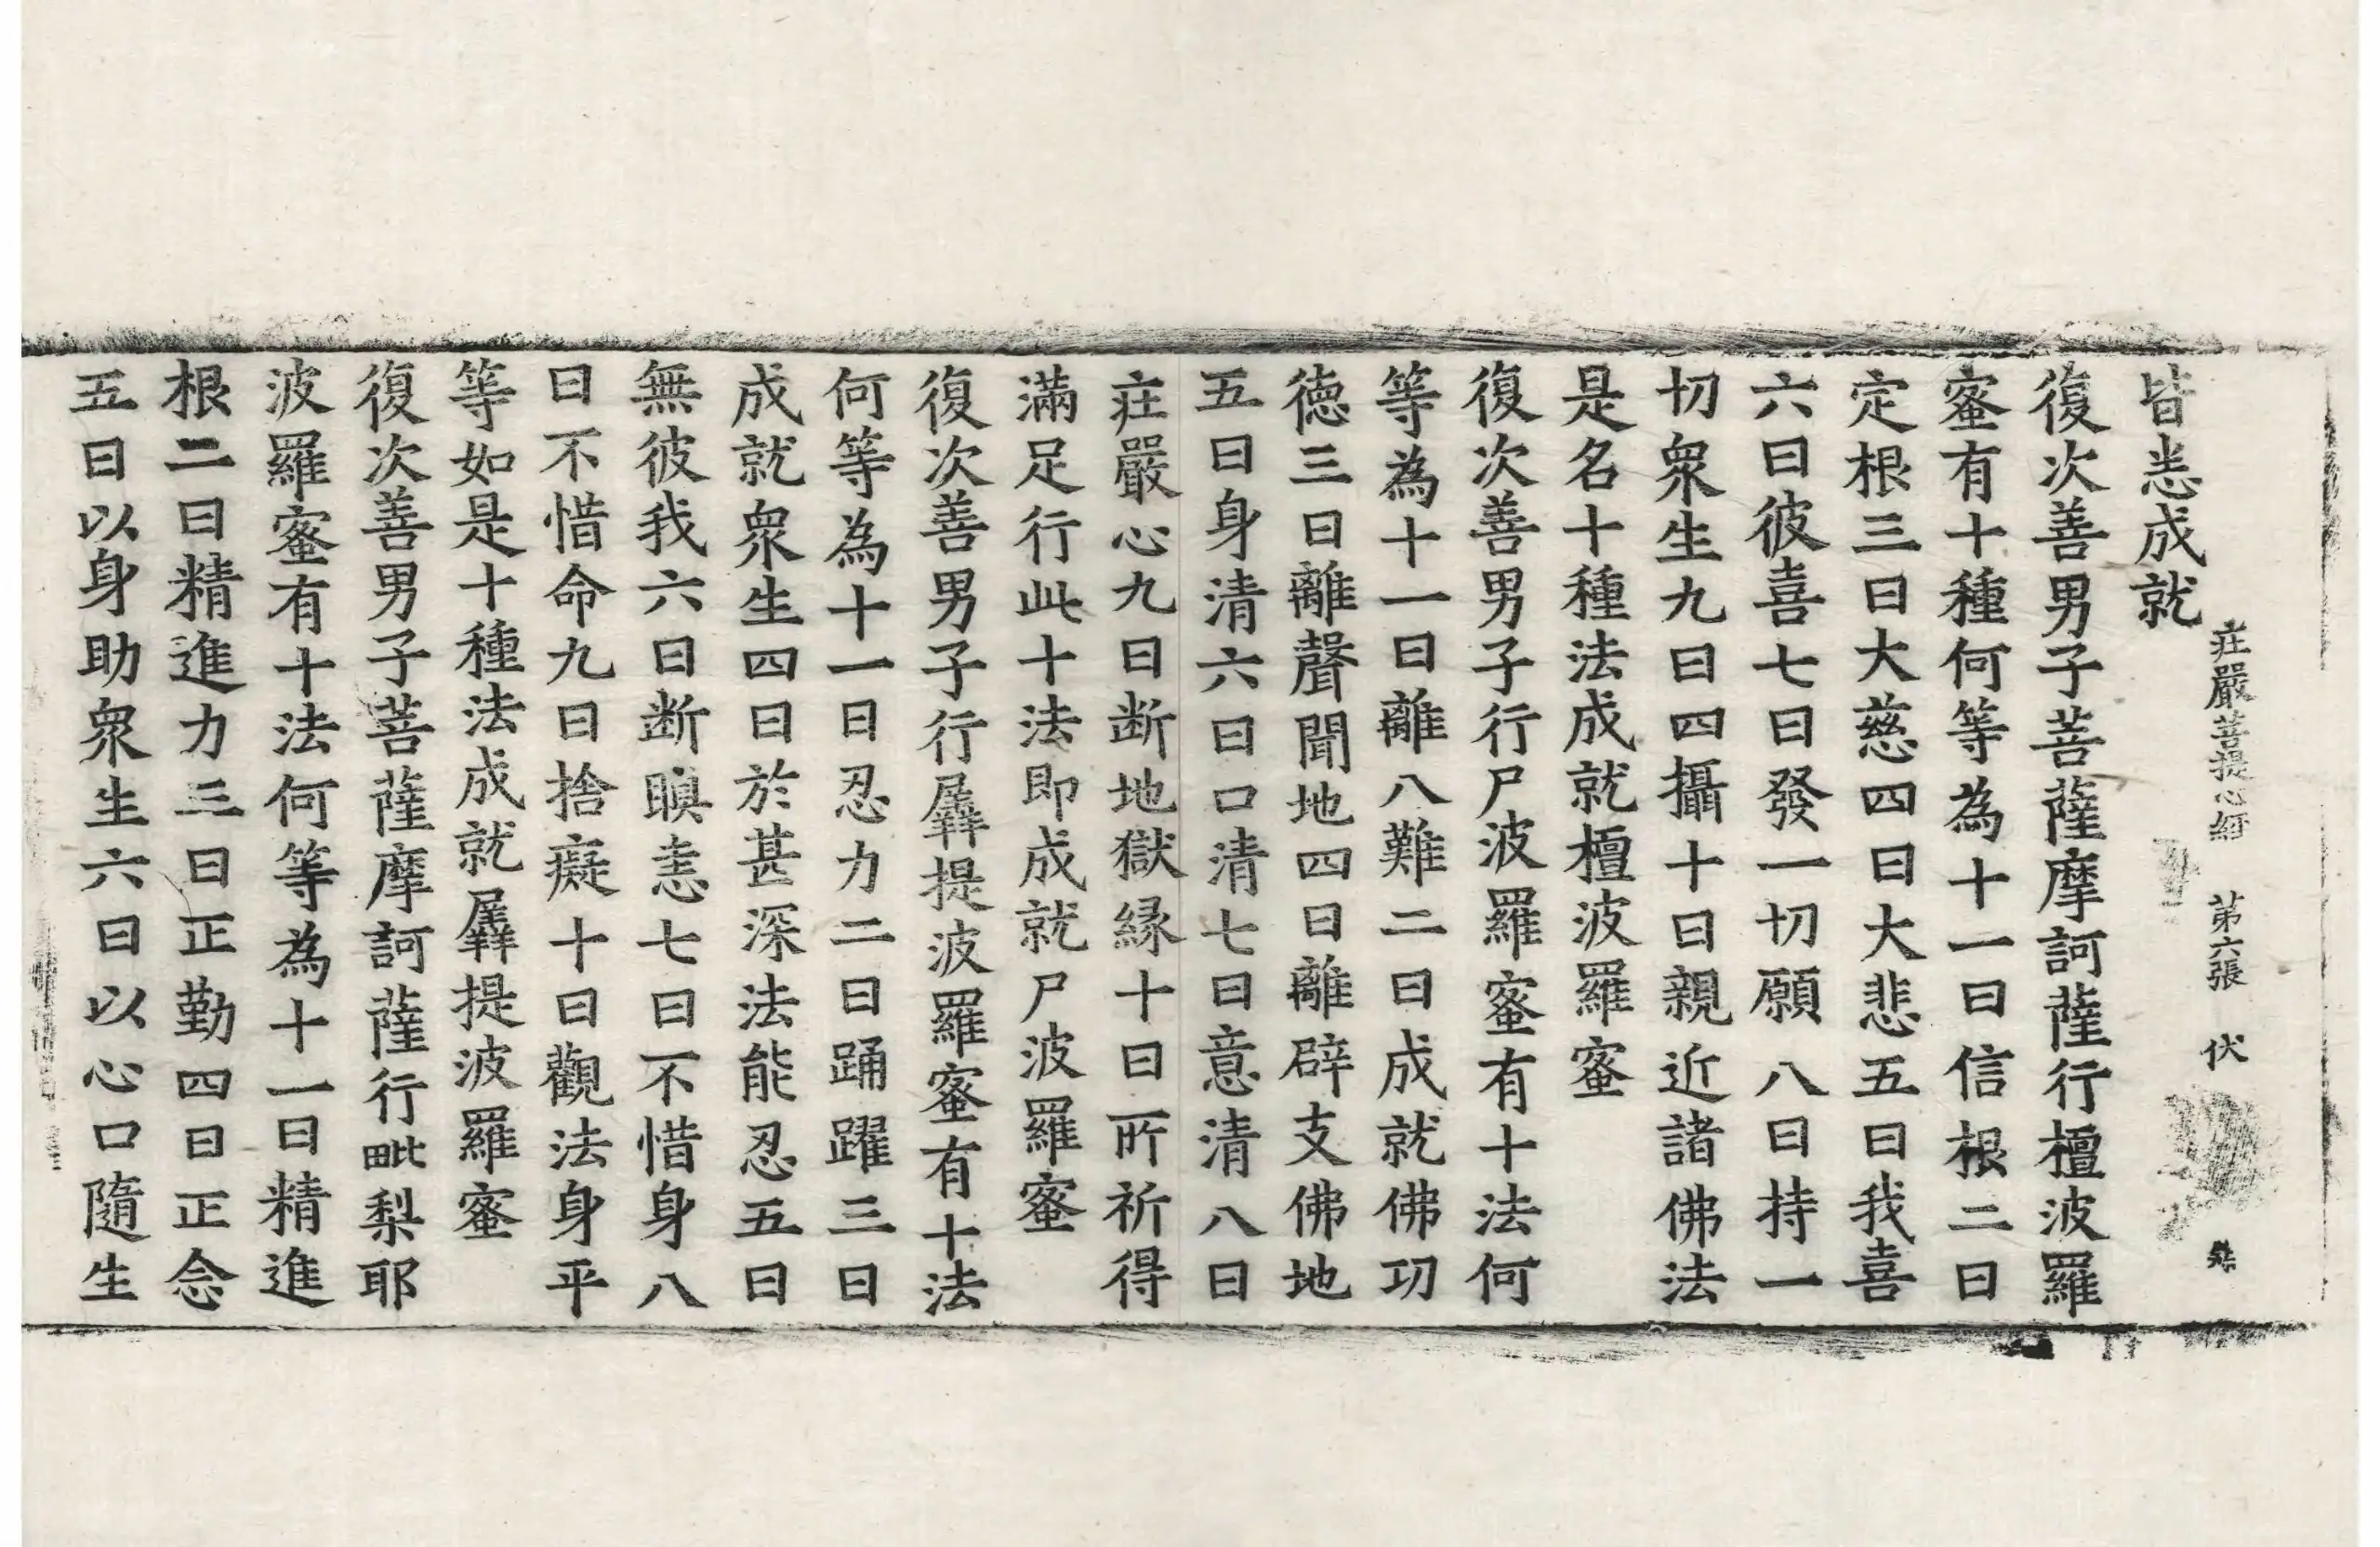 莊嚴菩提心經 第六張 伏
皆悉成就
復次善男子菩薩摩訶薩行檀波羅
蜜有十種何等為十一曰信根二曰
定根三曰大慈四曰大悲五曰我喜
六曰彼喜七曰發一切願八曰持一
切衆生九曰四攝十曰親近諸佛法
是名十種法成就檀波羅蜜
復次善男子行尸波羅蜜有十法何
等為十一曰離八難二曰成就佛功
德三曰離聲聞地四曰離辟支佛地
五曰身清六曰口清七曰意清八曰
莊嚴心九曰断地獄緣十曰所祈得
滿足行此十法即成就尸波羅蜜
復次善男子行羼提波羅蜜有十法
何等為十一曰忍力二曰踊躍三曰
成就衆生四曰於甚深法能忍五曰
無彼我六曰断瞋恚七曰不惜身八
曰不惜命九曰捨癡十曰觀法身平
等如是十種法成就羼提波羅蜜
復次善男子菩薩摩訶薩行毗梨耶
波羅蜜有十法何等為十一曰精進
根二曰精進力三曰正勤四曰正念
五曰以身助衆生六曰以心口隨生